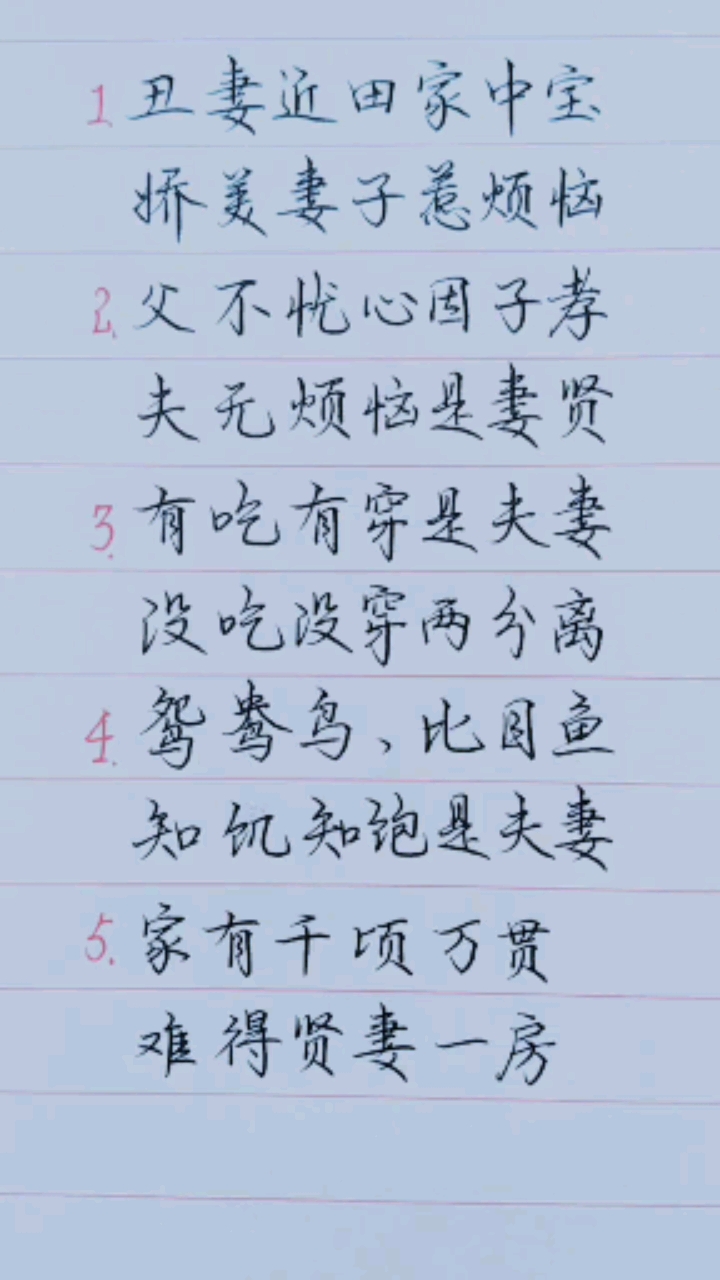 1. 丑妻近田家中宝
娇美妻子惹烦恼
2. 父不忧心因子孝
夫无烦恼是妻贤
3. 有吃有穿是夫妻
没吃没穿两分离
4. 鸳鸯鸟、比目鱼
知饥知饱是夫妻
5. 家有千顷万贯
难得贤妻一房